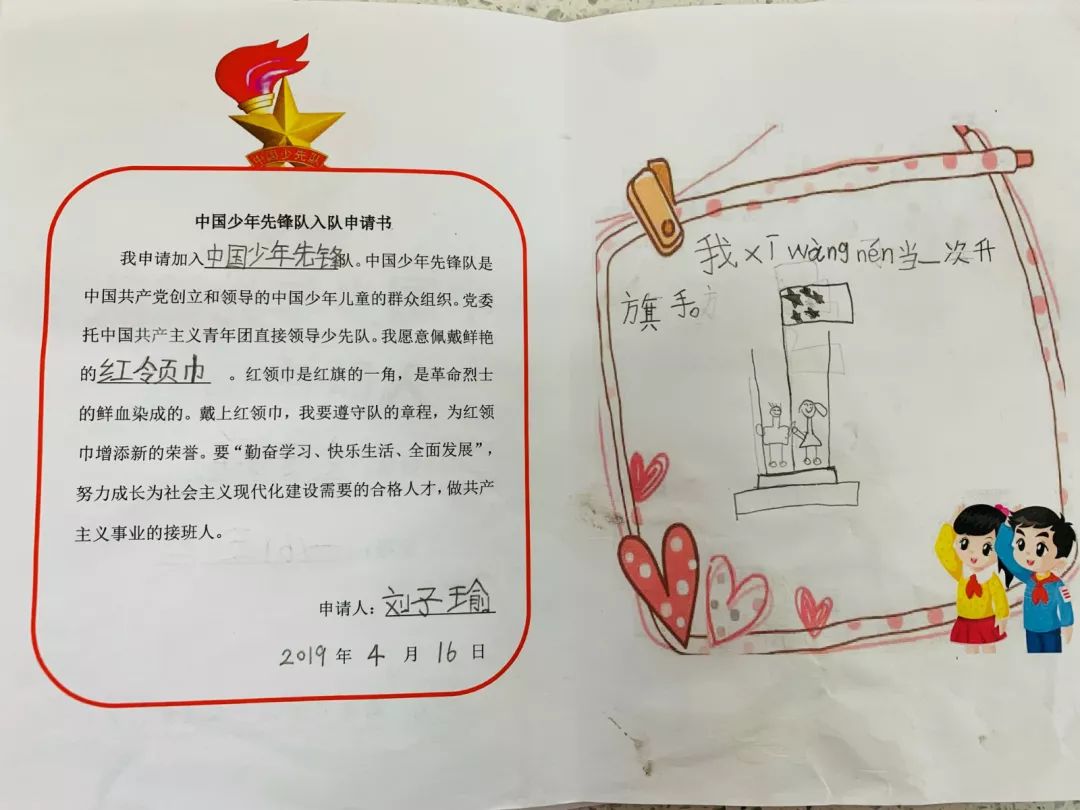 中国少先队
中国少年先锋队入队申请书
我申请加入中国少年先锋队。中国少年先锋队是
中国共产党创立和领导的中国少年儿童的群众组织。党委
托中国共产主义青年团直接领导少先队。我愿意佩戴鲜艳
的红领巾。红领巾是红旗的一角，是革命烈士
的鲜血染成的。戴上红领巾，我要遵守队的章程，为红领
巾增添新的荣誉。要“勤奋学习、快乐生活、全面发展”，
努力成长为社会主义现代化建设需要的合格人才，做共产
主义事业的接班人。
申请人：刘子瑜
2019 年 4 月 16 日
我 xī wàng nén 当一次升
旗手。